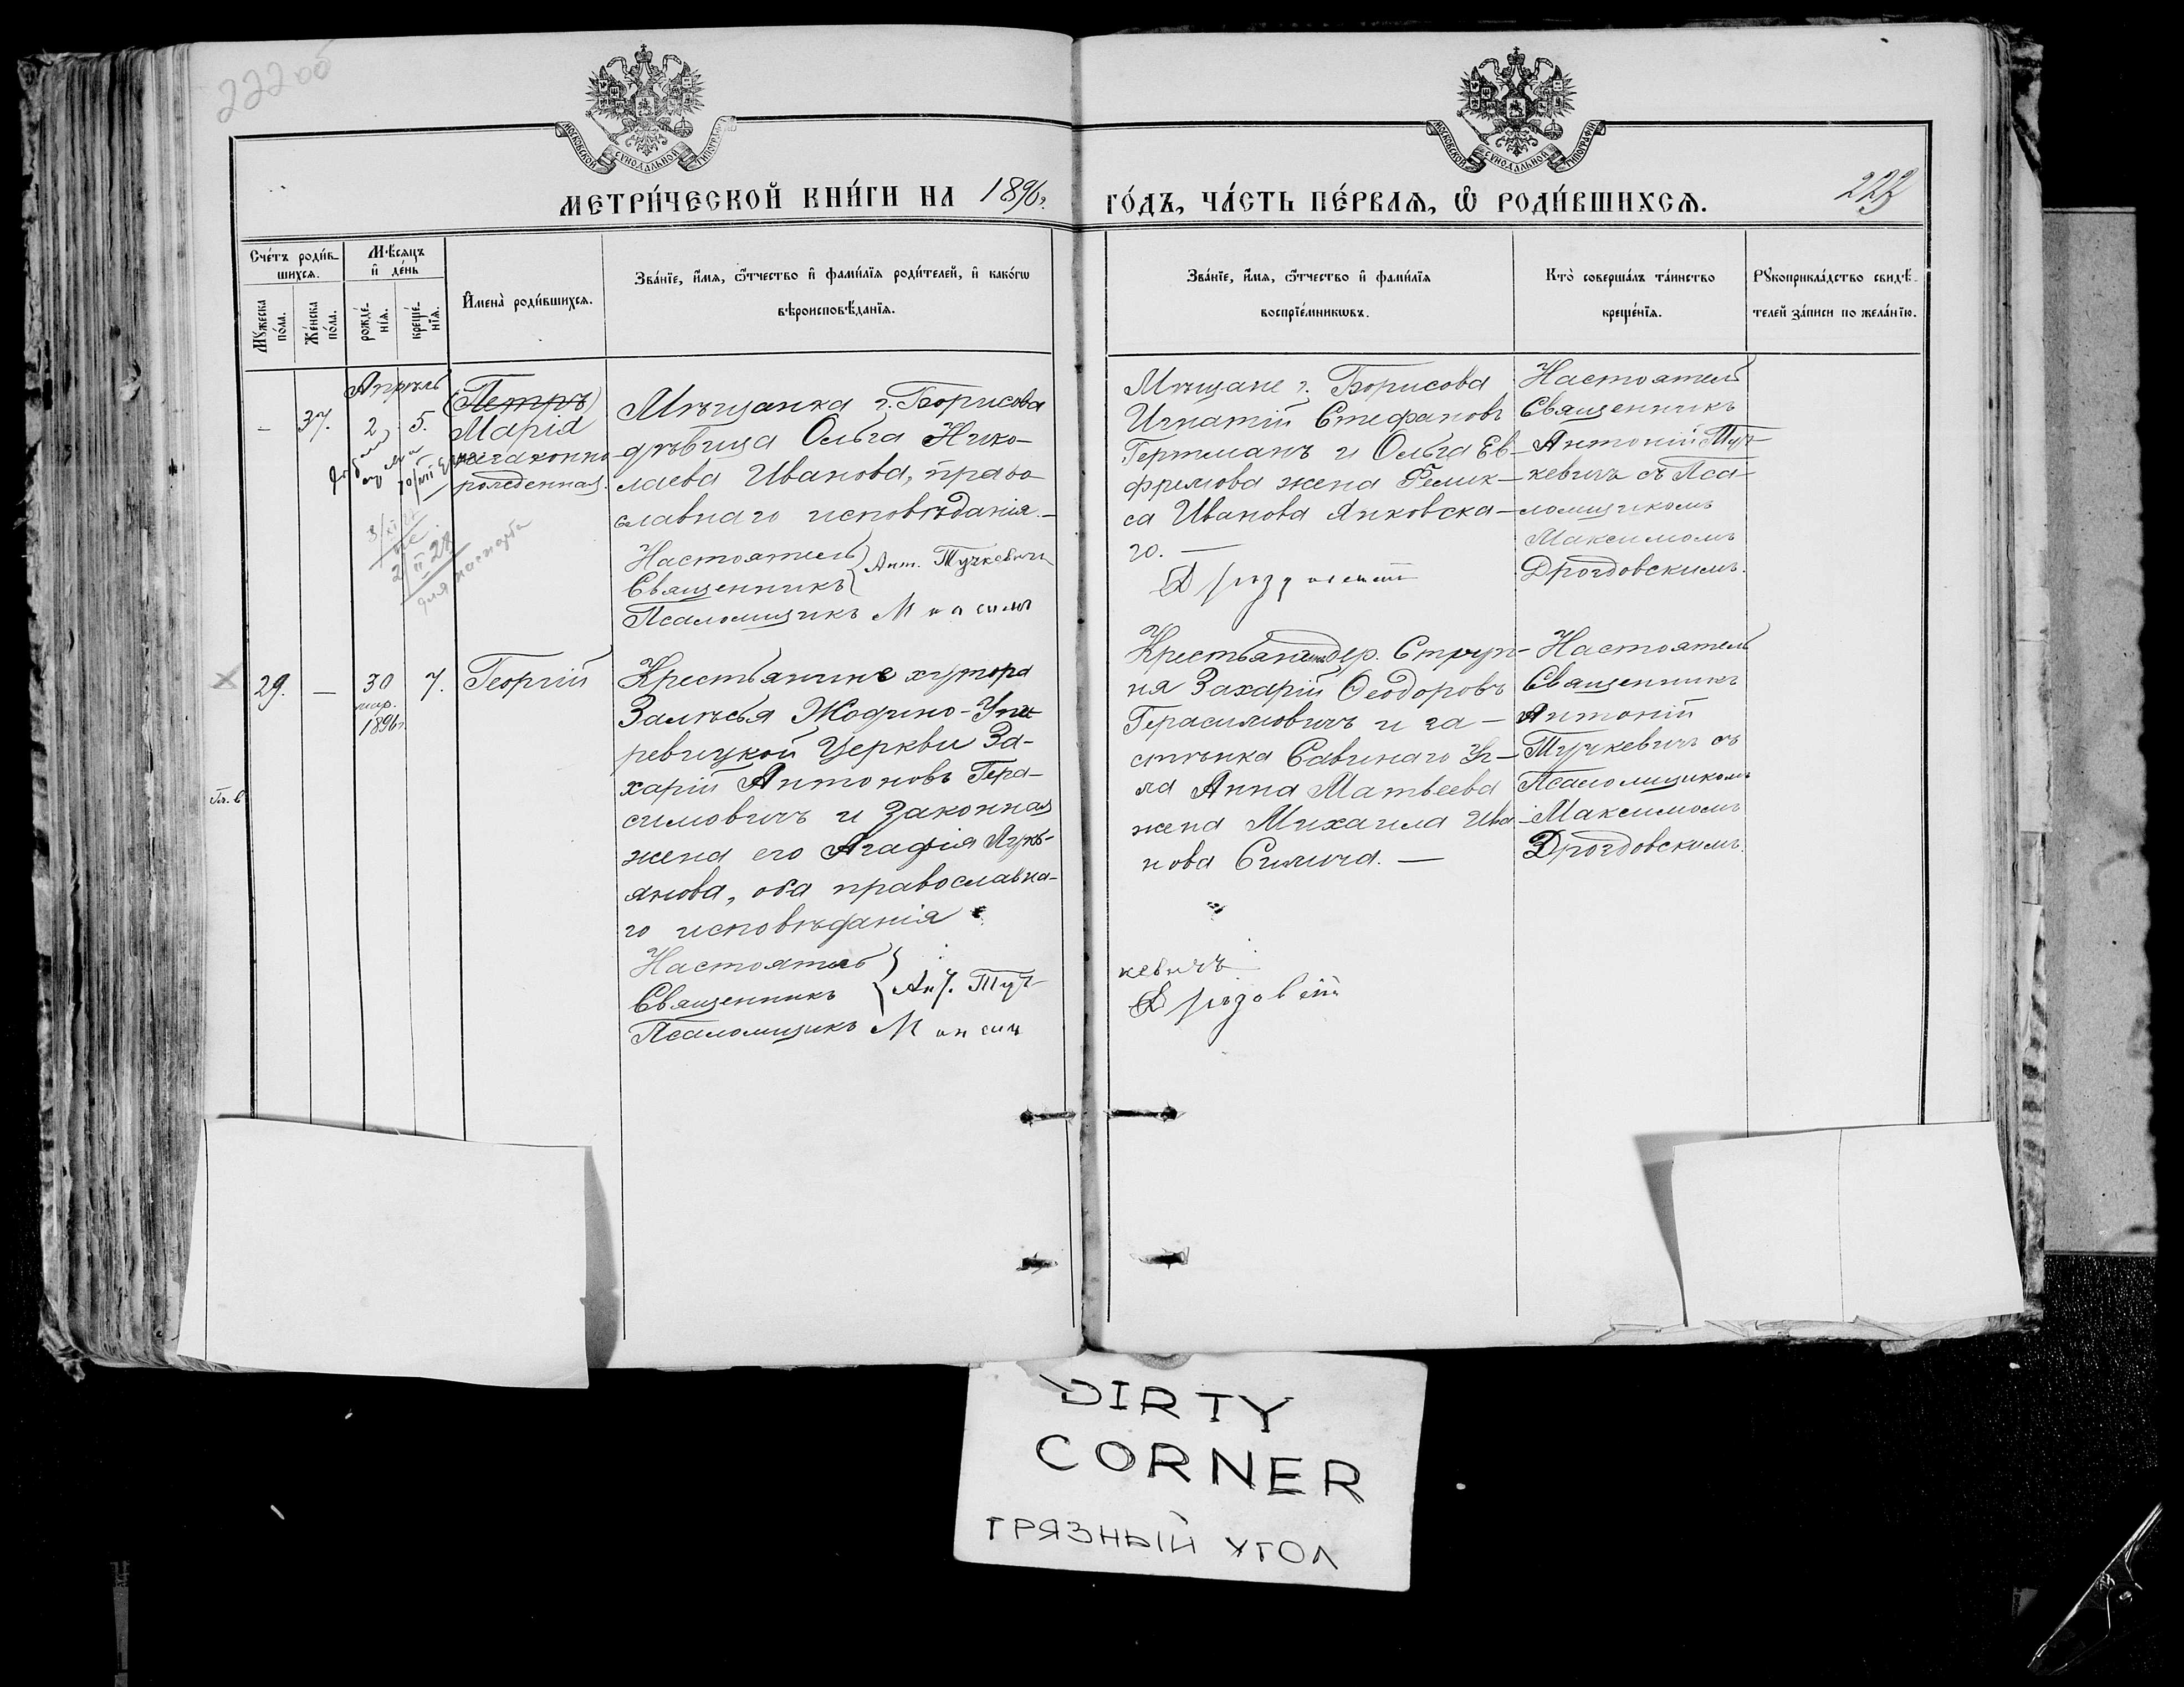 222 об
МОСКОВСКОЙ СѴНОДАЛЬНОЙ ТИПОГРАФІИ
МОСКОВСКОЙ СѴНОДАЛЬНОЙ ТИПОГРАФІИ
МЕТРИ́ЧЕСКОЙ КНИ́ГИ НА 1896 г.
ГО́ДЪ, ЧА́СТЬ ПЕ́РВАѦ, Ѡ҆ РОДИ́ВШИХСѦ.
223
Сче́тъ роди́в-
шихсѧ.
Мѣ́сѧцъ
и҆ де́нь
Мꙋ́жеска по́ла.
Же́нска по́ла.
рожде́-
нїѧ.
креще́-
нїѧ.
И҆мена̀ роди́вшихсѧ.
Зва́нїе, и҆́мѧ, ѻ҆́тчество и҆ фами́лїѧ роди́телей, и҆ како́гѡ
вѣроисповѣ́данїѧ.
Зва́нїе, и҆́мѧ, ѻ҆́тчество и҆ фами́лїѧ
воспрїе́мникѡвъ.
Кто̀ соверша́лъ та́инство
креще́нїѧ.
Рꙋкоприкла́дство свидѣ́-
телей за́писи по жела́нїю.
Апрѣль
–
37.
2
5.
(Петръ)
Марія
незаконно
рожденная.
Мѣщанка г. Борисова
дѣвица Ольга Нико-
лаева Иванова, право
славнаго исповѣданія. –
Настоятель
Священникъ } Ант. Тучкевичъ
Псаломщикъ Максимъ
для паспорта
Мѣщане г. Борисова
Игнатій Стефановъ
Гертманъ и Ольга Ев-
фремова жена Феликс-
са Иванова Янковска-
го. —
Дроздовскій
Настоятель
Священникъ
Антоній Туч-
кевичъ съ Пса-
ломщикомъ
Максимомъ
Дроздовскимъ.
29.
–
30
мар.
1896 г.
7.
Георгій
Крестьянинъ хутора
Залѣсья Жодино-Упи
ревицкой Церкви За-
харій Антоновъ Гера-
симовичъ и законная
жена его Агафія Лукь-
янова, оба православна-
го исповѣданія
Настоятель
Священникъ } Ант. Туч-
Псаломщикъ Максим
Крестьянинъ дер. Струп-
ня Захарій Ѳеодоровъ
Герасимовичъ и за-
стѣнка Савинаго Уг-
ла Анна Матвеева
жена Михаила Ива
нова Силича. —
кевичъ
Дроздовскій
Настоятель
Священникъ
Антоній
Тучкевичъ съ
Псаломщикомъ
Максимомъ
Дроздовскимъ.
DIRTY
CORNER
ГРЯЗНЫЙ УГОЛ